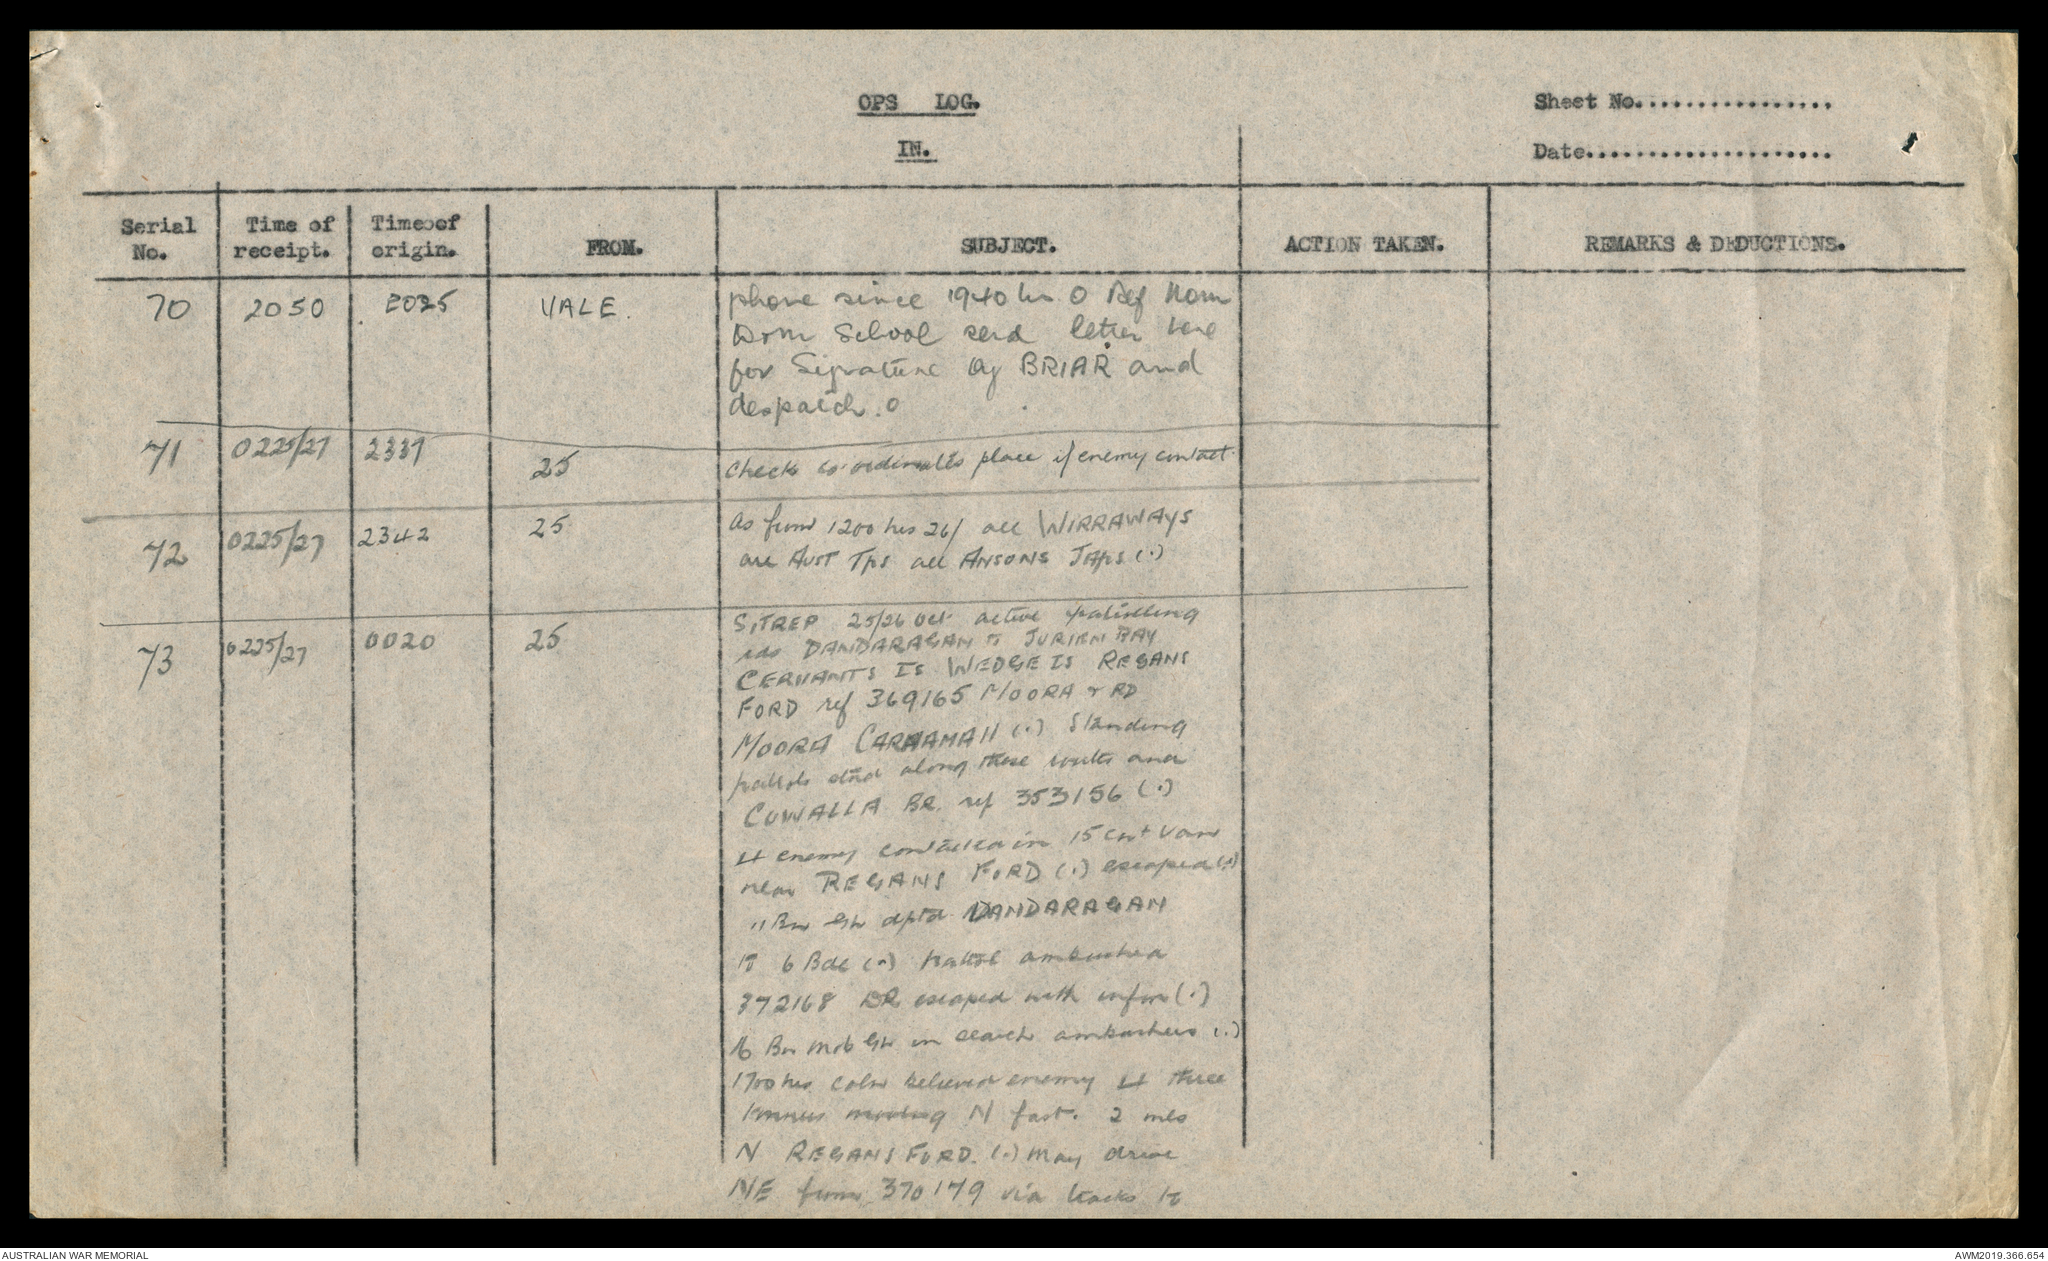 OPS LOG.
IN.
Sheet No.................
Date.....................
Serial No.
Time of receipt.
Time of origin.
FROM.
SUBJECT.
ACTION TAKEN.
REMARKS & DEDUCTIONS.
70 2050 2035 VALE.
phone since 1940 hrs 0 Ref Nom
Dom School send letter here
for Signature by BRIAR and
despatch. 0
71 0225/27 2337 25
Check co-ordinates place if enemy contact.
72 0225/27 2342 25
as from 1200 hrs 26/ all WIRRAWAYS
are AUST Tps all ANSONS JAPS (.)
73 0225/27 0020 25
SITREP 25/26 Oct active patrolling
rds DANDARAGAN to JURIEN BAY
CERVANTS IS WEDGE IS REGANS
FORD ref 369165 MOORA & RD
MOORA CARNAMAH (.) Standing
patrols along these routes and
COWALLA BR. ref 353156 (.)
4 enemy contacted in 15 cwt van
near REGANS FORD (.) escaped (.)
11 Bn Gp dptd DANDARAGAN
to 6 Bde (.) Patrol ambushed
372168 DR escaped with infm (.)
16 Bn Mob Gp in search ambushers (.)
1700 hrs coln believed enemy 4 three
tonners moving N fast. 2 mls
N REGANS FORD. (.) May drive
NE from 370179 via tracks to
AUSTRALIAN WAR MEMORIAL
AWM2019.366.654